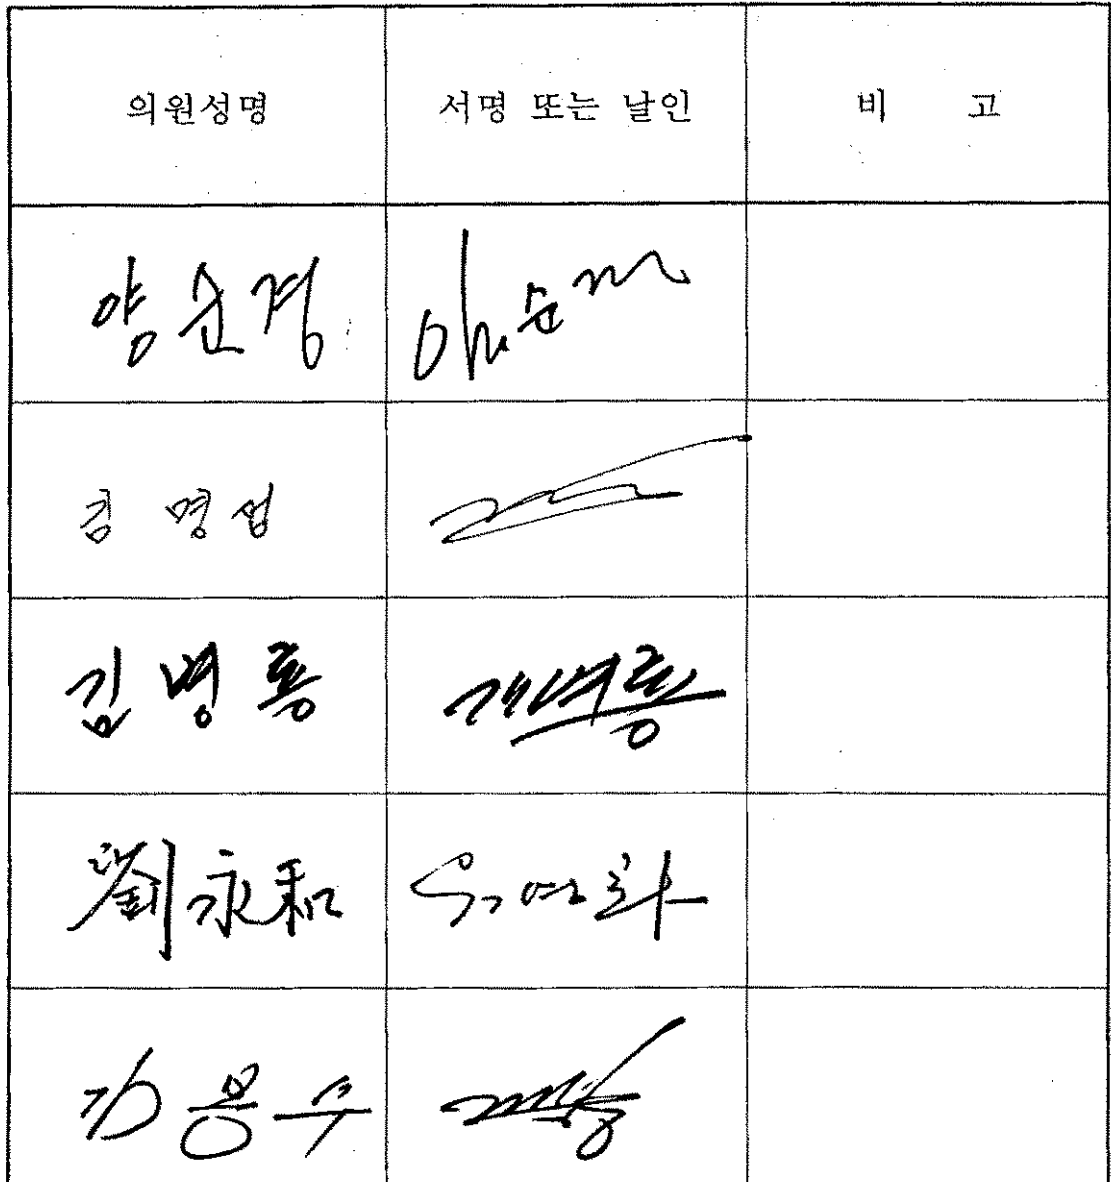 의원성명 서명 또는 날인 비 고
양순경
김명섭
김병룡 김병룡
劉永和 유영화
김용수